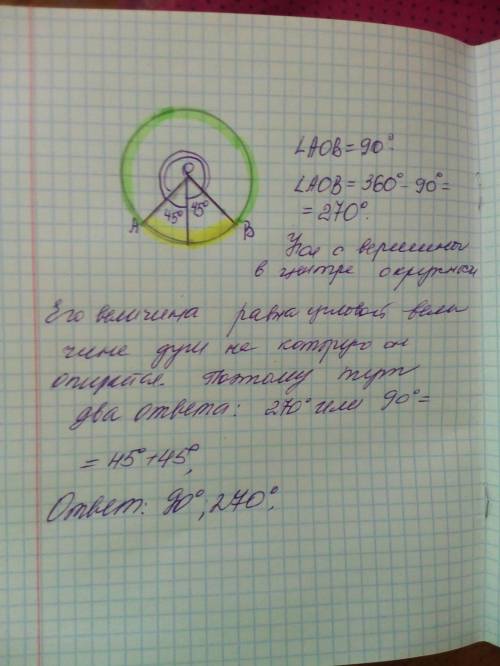 O
45° 45°
A B
∠AOB = 90°
∠AOB = 360° - 90° =
= 270°.
с вершины
в центре окружн
Его величина равна угловой вели
чине дуги на которую он
опирается. Поэтому тут
два ответа: 270° или 90° =
= 45° + 45°,
Ответ: 90°, 270°.